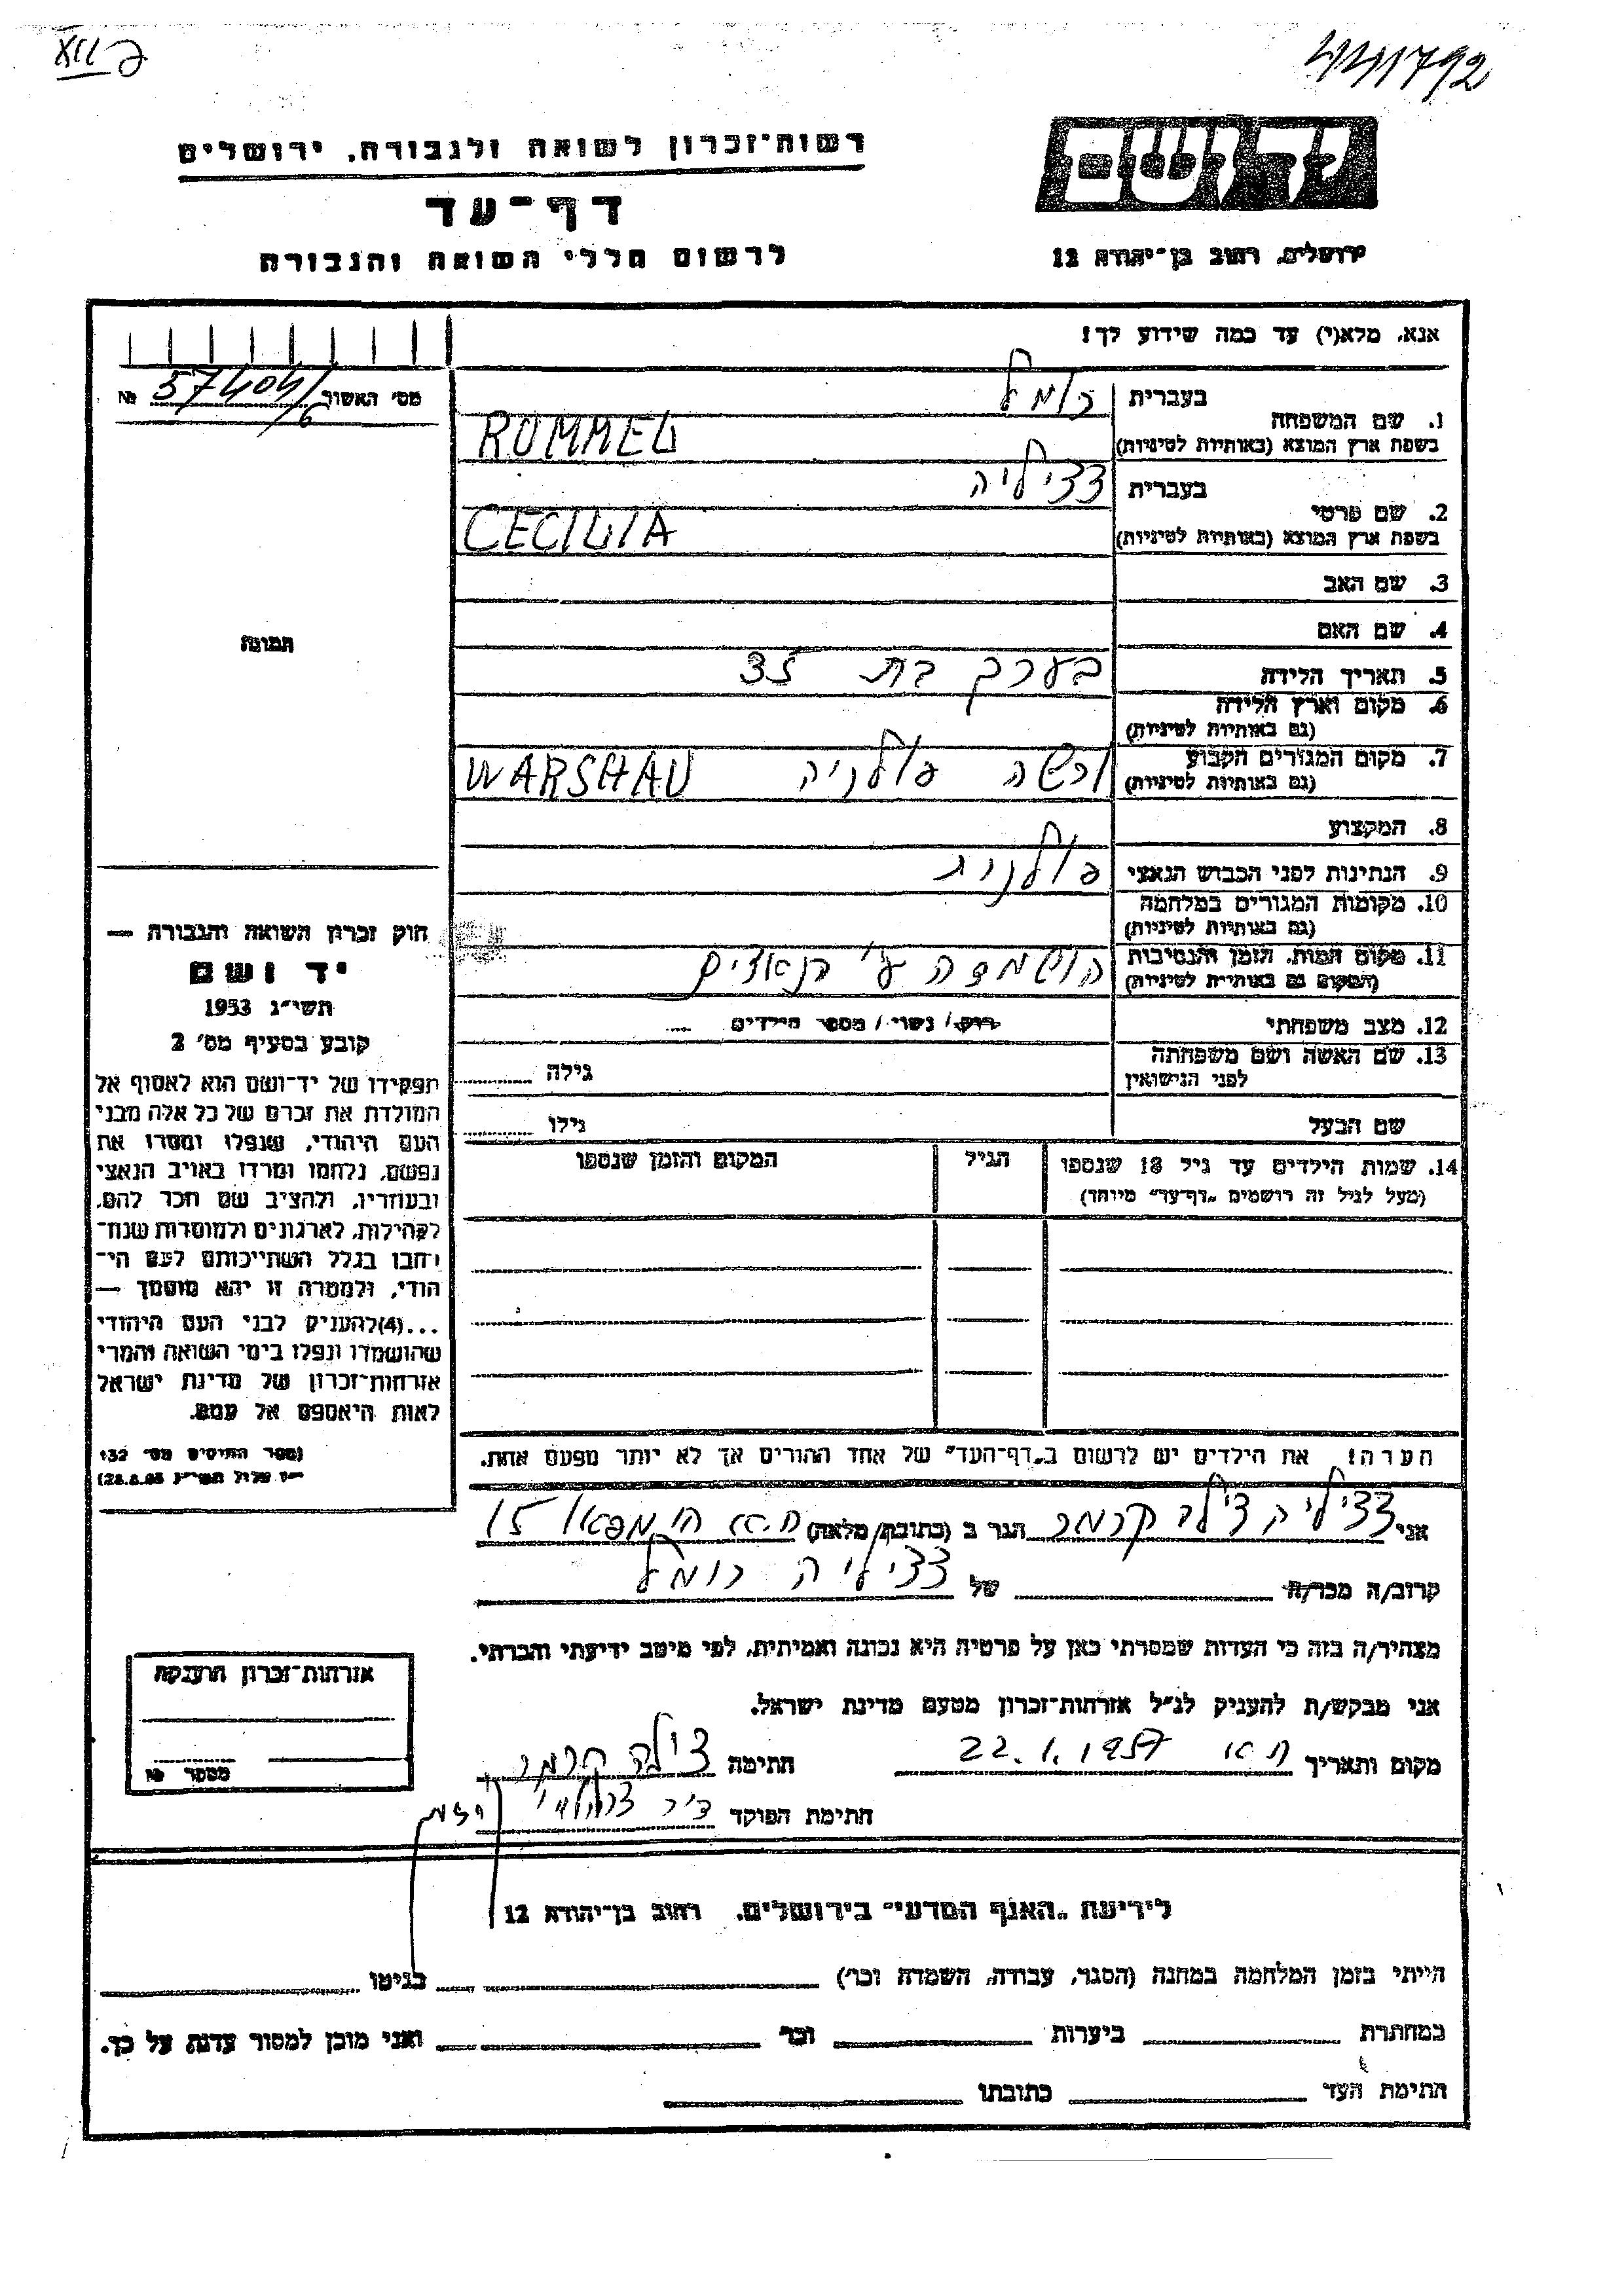 441792
רשות־זכרון לשואה ולגבורה, ירושלים
דף־עד
לרשום חללי השואה והגבורה
יד ושם
ירושלים, רחוב בן־יהודה 12
אנא, מלא(י) עד כמה שידוע לך!
מס׳ האשור 57404/6 №
תמונה
1. שם המשפחה
בעברית רומל
בשפת ארץ המוצא (באותיות לטיניות) ROMMEL
2. שם פרטי
בעברית צציליה
בשפת ארץ המוצא (באותיות לטיניות) CECILIA
3. שם האב
4. שם האם
5. תאריך הלידה בערך בת 35
6. מקום וארץ הלידה
(גם באותיות לטיניות)
7. מקום המגורים הקבוע ורשה פולניה WARSHAU
(גם באותיות לטיניות)
8. המקצוע
9. הנתינות לפני הכבוש הנאצי פולניה
10. מקומות המגורים במלחמה
(גם באותיות לטיניות)
11. מקום המות, הזמן והנסיבות הושמדה ע״י הנאצים
(המקום גם באותיות לטיניות)
12. מצב משפחתי רווק / נשוי / מספר הילדים
13. שם האשה ושם משפחתה
לפני הנישואין
גילה
שם הבעל גילו
14. שמות הילדים עד גיל 18 שנספו הגיל המקום והזמן שנספו
(מעל לגיל זה רושמים „דף־עד״ מיוחד)
הערה! את הילדים יש לרשום ב„דף־העד״ של אחד ההורים אך לא יותר מפעם אחת.
חוק זכרון השואה והגבורה —
יד ושם
תשי״ג 1953
קובע בסעיף מס׳ 2
תפקידו של יד־ושם הוא לאסוף אל
המולדת את זכרם של כל אלה מבני
העם היהודי, שנפלו ומסרו את
נפשם, נלחמו ומרדו באויב הנאצי
ובעוזריו, ולהציב שם וזכר להם,
לקהילות, לארגונים ולמוסדות שנח־
רבו בגלל השתייכותם לעם הי־
הודי, ולמטרה זו יהא מוסמך —
...(4) להעניק לבני העם היהודי
שהושמדו ונפלו בימי השואה והמרי
אזרחות־זכרון של מדינת ישראל
לאות היאספם אל עמם.
(ספר החוקים מס׳ 132
אני צציליה צילה קרמר הגר ב (כתובת מלאה) ת.א 15
קרוב/ה מכר/ה של צציליה רומל
מצהיר/ה בזה כי העדות שמסרתי כאן על פרטיה היא נכונה ואמיתית, לפי מיטב ידיעתי והכרתי.
אני מבקש/ת להעניק לנ״ל אזרחות־זכרון מטעם מדינת ישראל.
מקום ותאריך ת.א 22.1.1957 חתימה צילה קרמר
חתימת הפוקד
אזרחות־זכרון הוענקה
מספר №
לידיעת „האגף המדעי״ בירושלים, רחוב בן־יהודה 12
הייתי בזמן המלחמה במחנה (הסגר, עבודה, השמדה וכו׳) בגיטו
במחתרת ביערות וכו׳ ואני מוכן למסור עדות על כך.
חתימת העד כתובתו